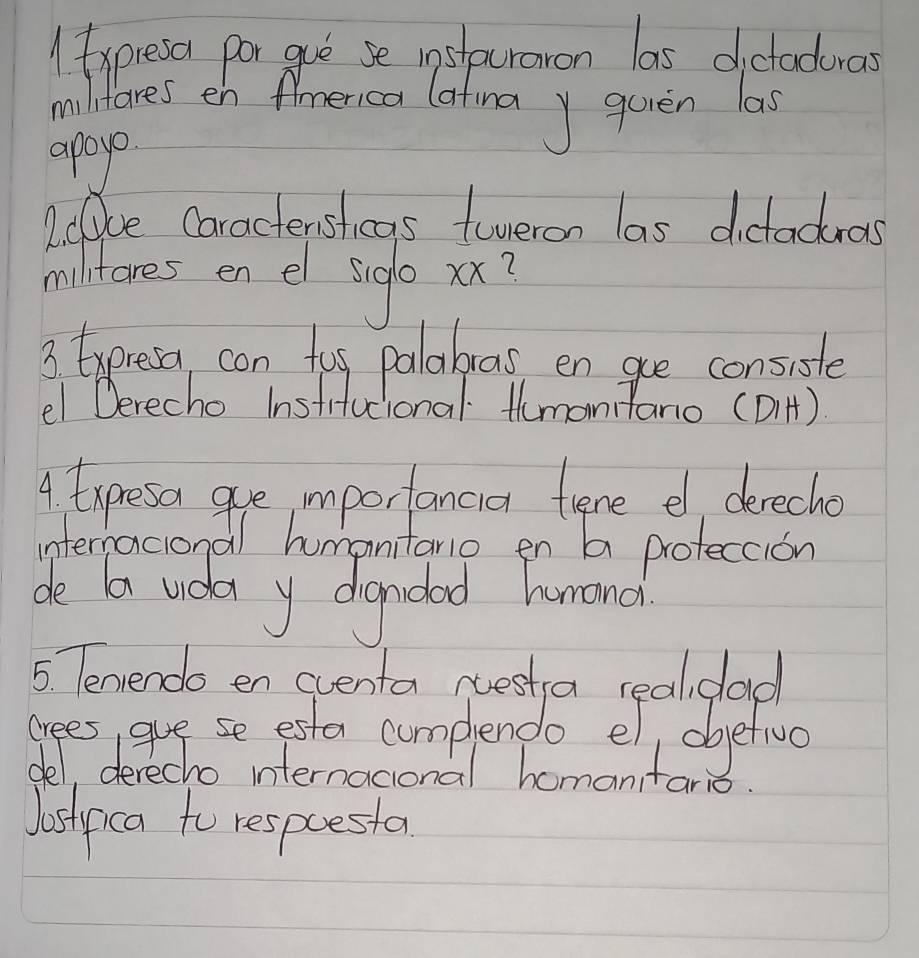 1 Expresa por qué se instauraron las dictaduras
militares en America latina y quién las
apoyo.
2. ¿Que Caracteristicas tuvieron las dictaduras
militares en el siglo xx?
3. Expresa con tus palabras en que consiste
el Derecho Institucional Humanitario (DIH).
4. Expresa que importancia tiene el derecho
internacional humanitario en la protección
de la vida y dignidad humana.
5. Teniendo en cuenta nuestra realidad
crees que se esta cumpliendo el objetivo
del derecho internacional homanitario.
Justifica tu respuesta.